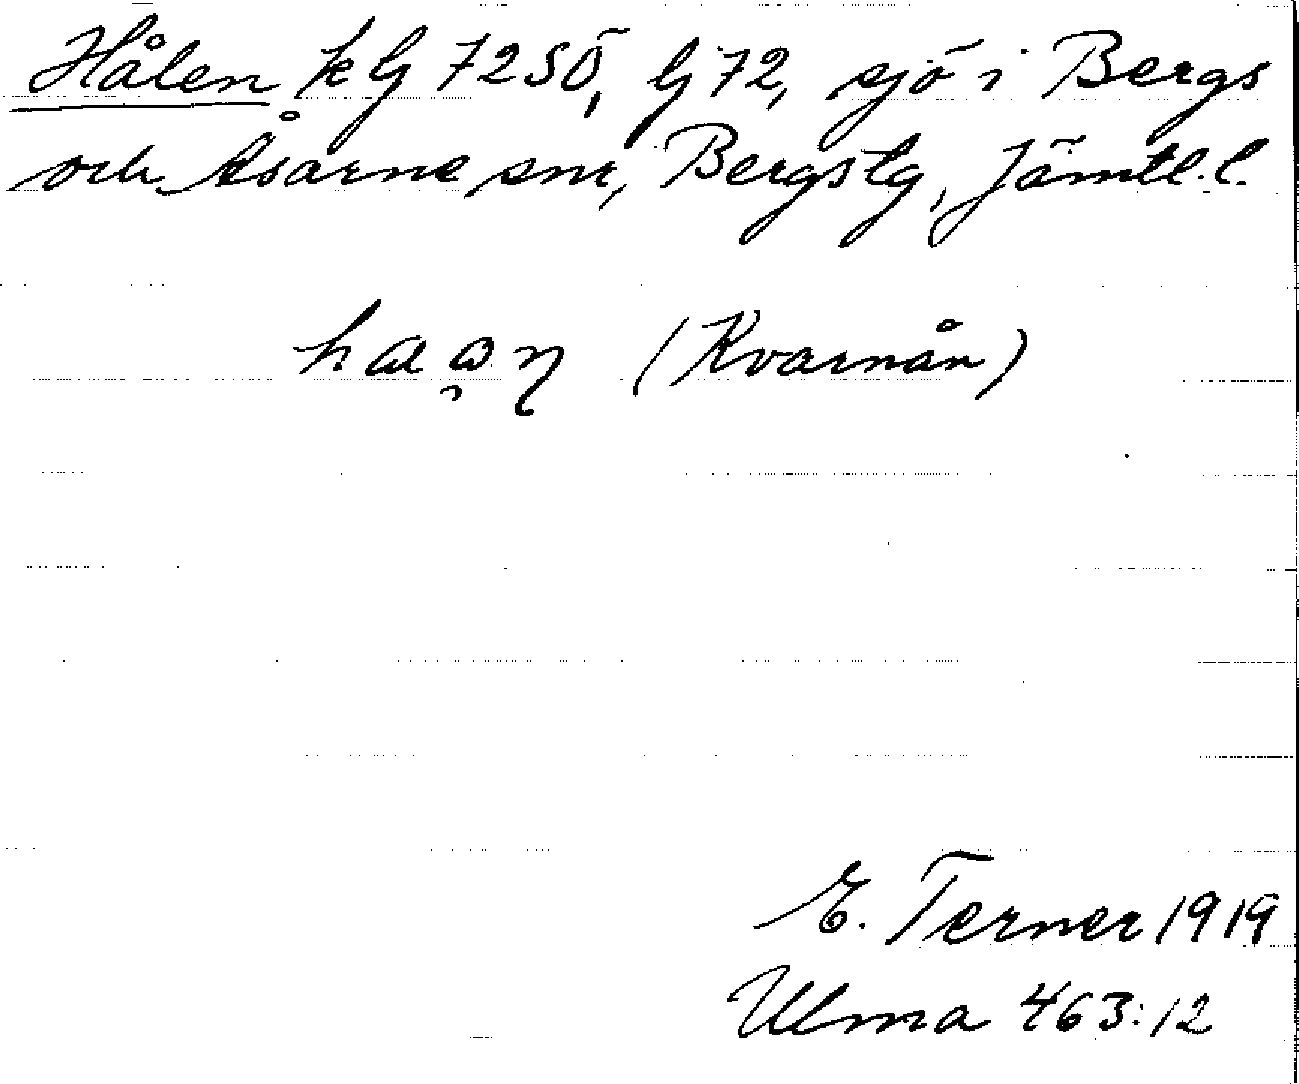 Hålen kbg 72SÖ, bg 72, sjö i Bergs
och Åsarne snr, Bergs tg, Jämtl. l.
(Kvarnån)
E. Terner 1919
Ulma 463:12